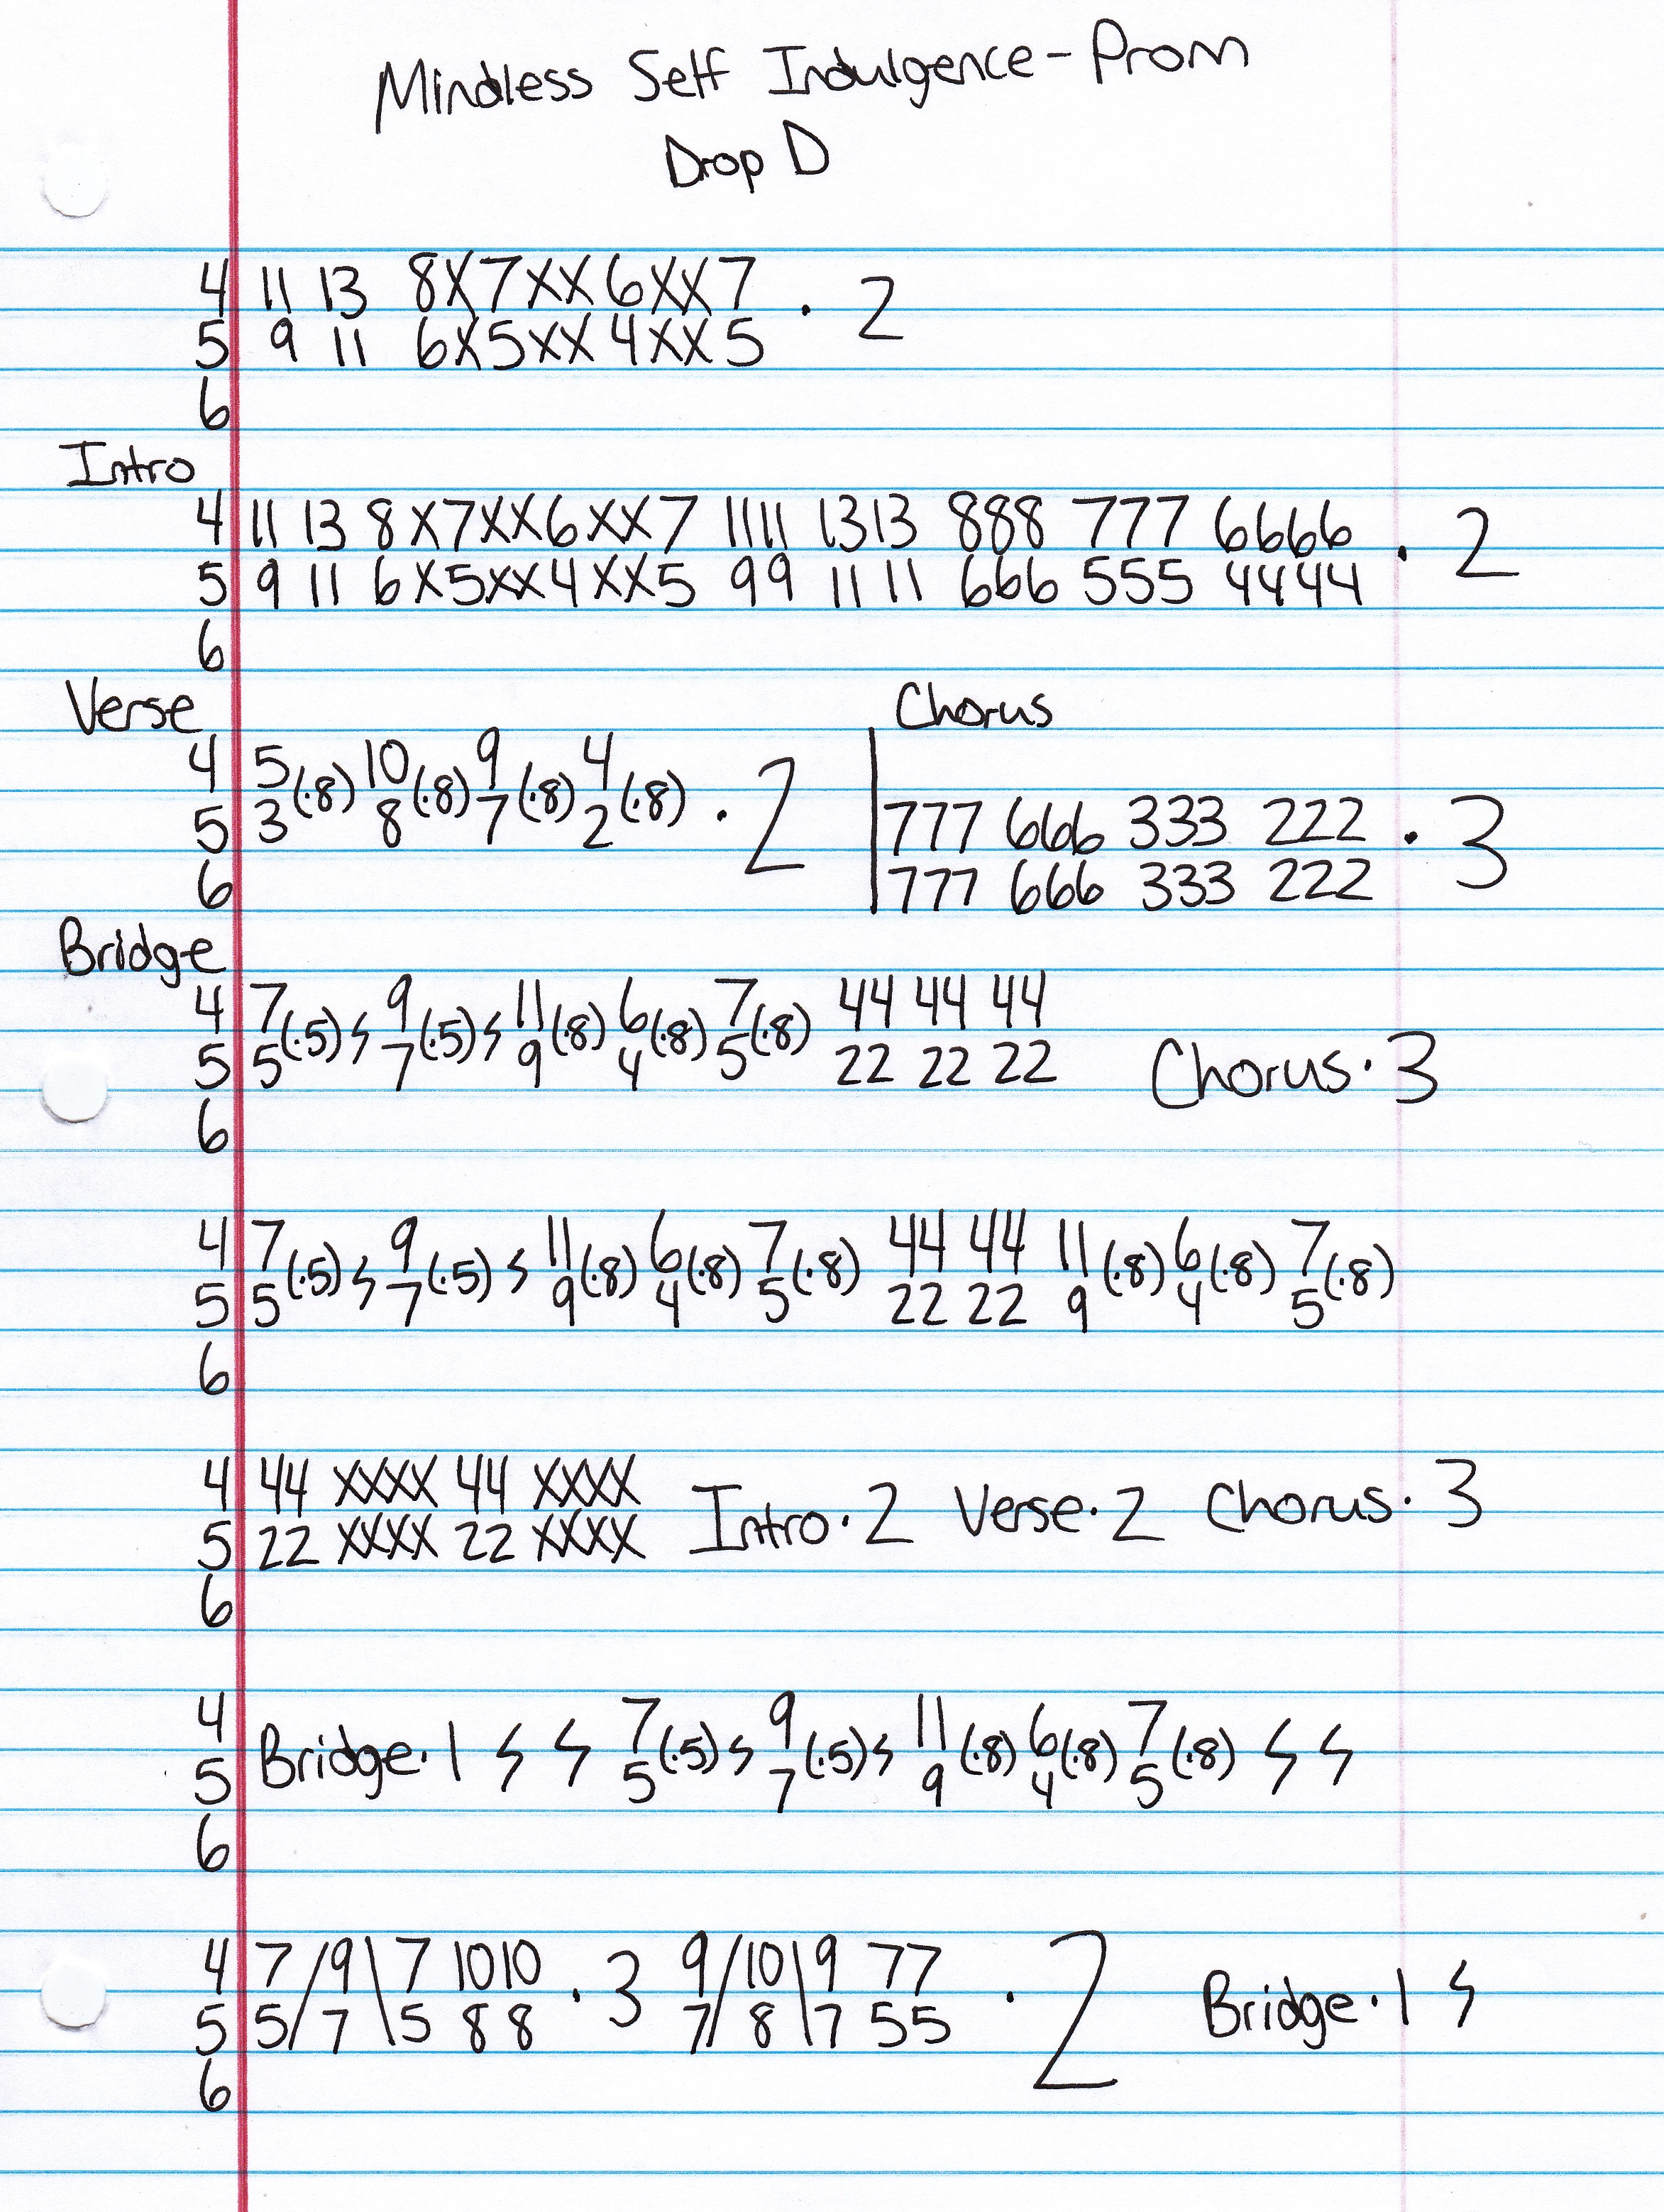 Mindless Self Indulgence - Prom
Drop D
4 11 13 8X7XX6XX7
5 9 11 6X5XX4XX5 · 2
6
Intro
4 11 13 8X7XX6XX7 1111 1313 888 777 6666
5 9 11 6X5XX4XX5 99 11 11 666 555 4444 · 2
6
Verse Chorus
4 5(·8) 10(·8) 9(·8) 4(·8)
5 3 8 7 2 · 2 777 666 333 222 · 3
6 777 666 333 222
Bridge
4 7(·5) 9(·5) 11(·8) 6(·8) 7(·8) 44 44 44
5 5 7 9 4 5 22 22 22 Chorus · 3
6
4 7(·5) 9(·5) 11(·8) 6(·8) 7(·8) 44 44 11(·8) 6(·8) 7(·8)
5 5 7 9 4 5 22 22 9 4 5
6
4 44 XXXX 44 XXXX
5 22 XXXX 22 XXXX Intro · 2 Verse · 2 Chorus · 3
6
4 7(·5) 9(·5) 11(·8) 6(·8) 7(·8)
5 Bridge · 1 5 7 9 4 5
6
4 7/9\7 1010 · 3 9/10\9 77
5 5/7\5 88 7/8\7 55 · 2 Bridge · 1
6